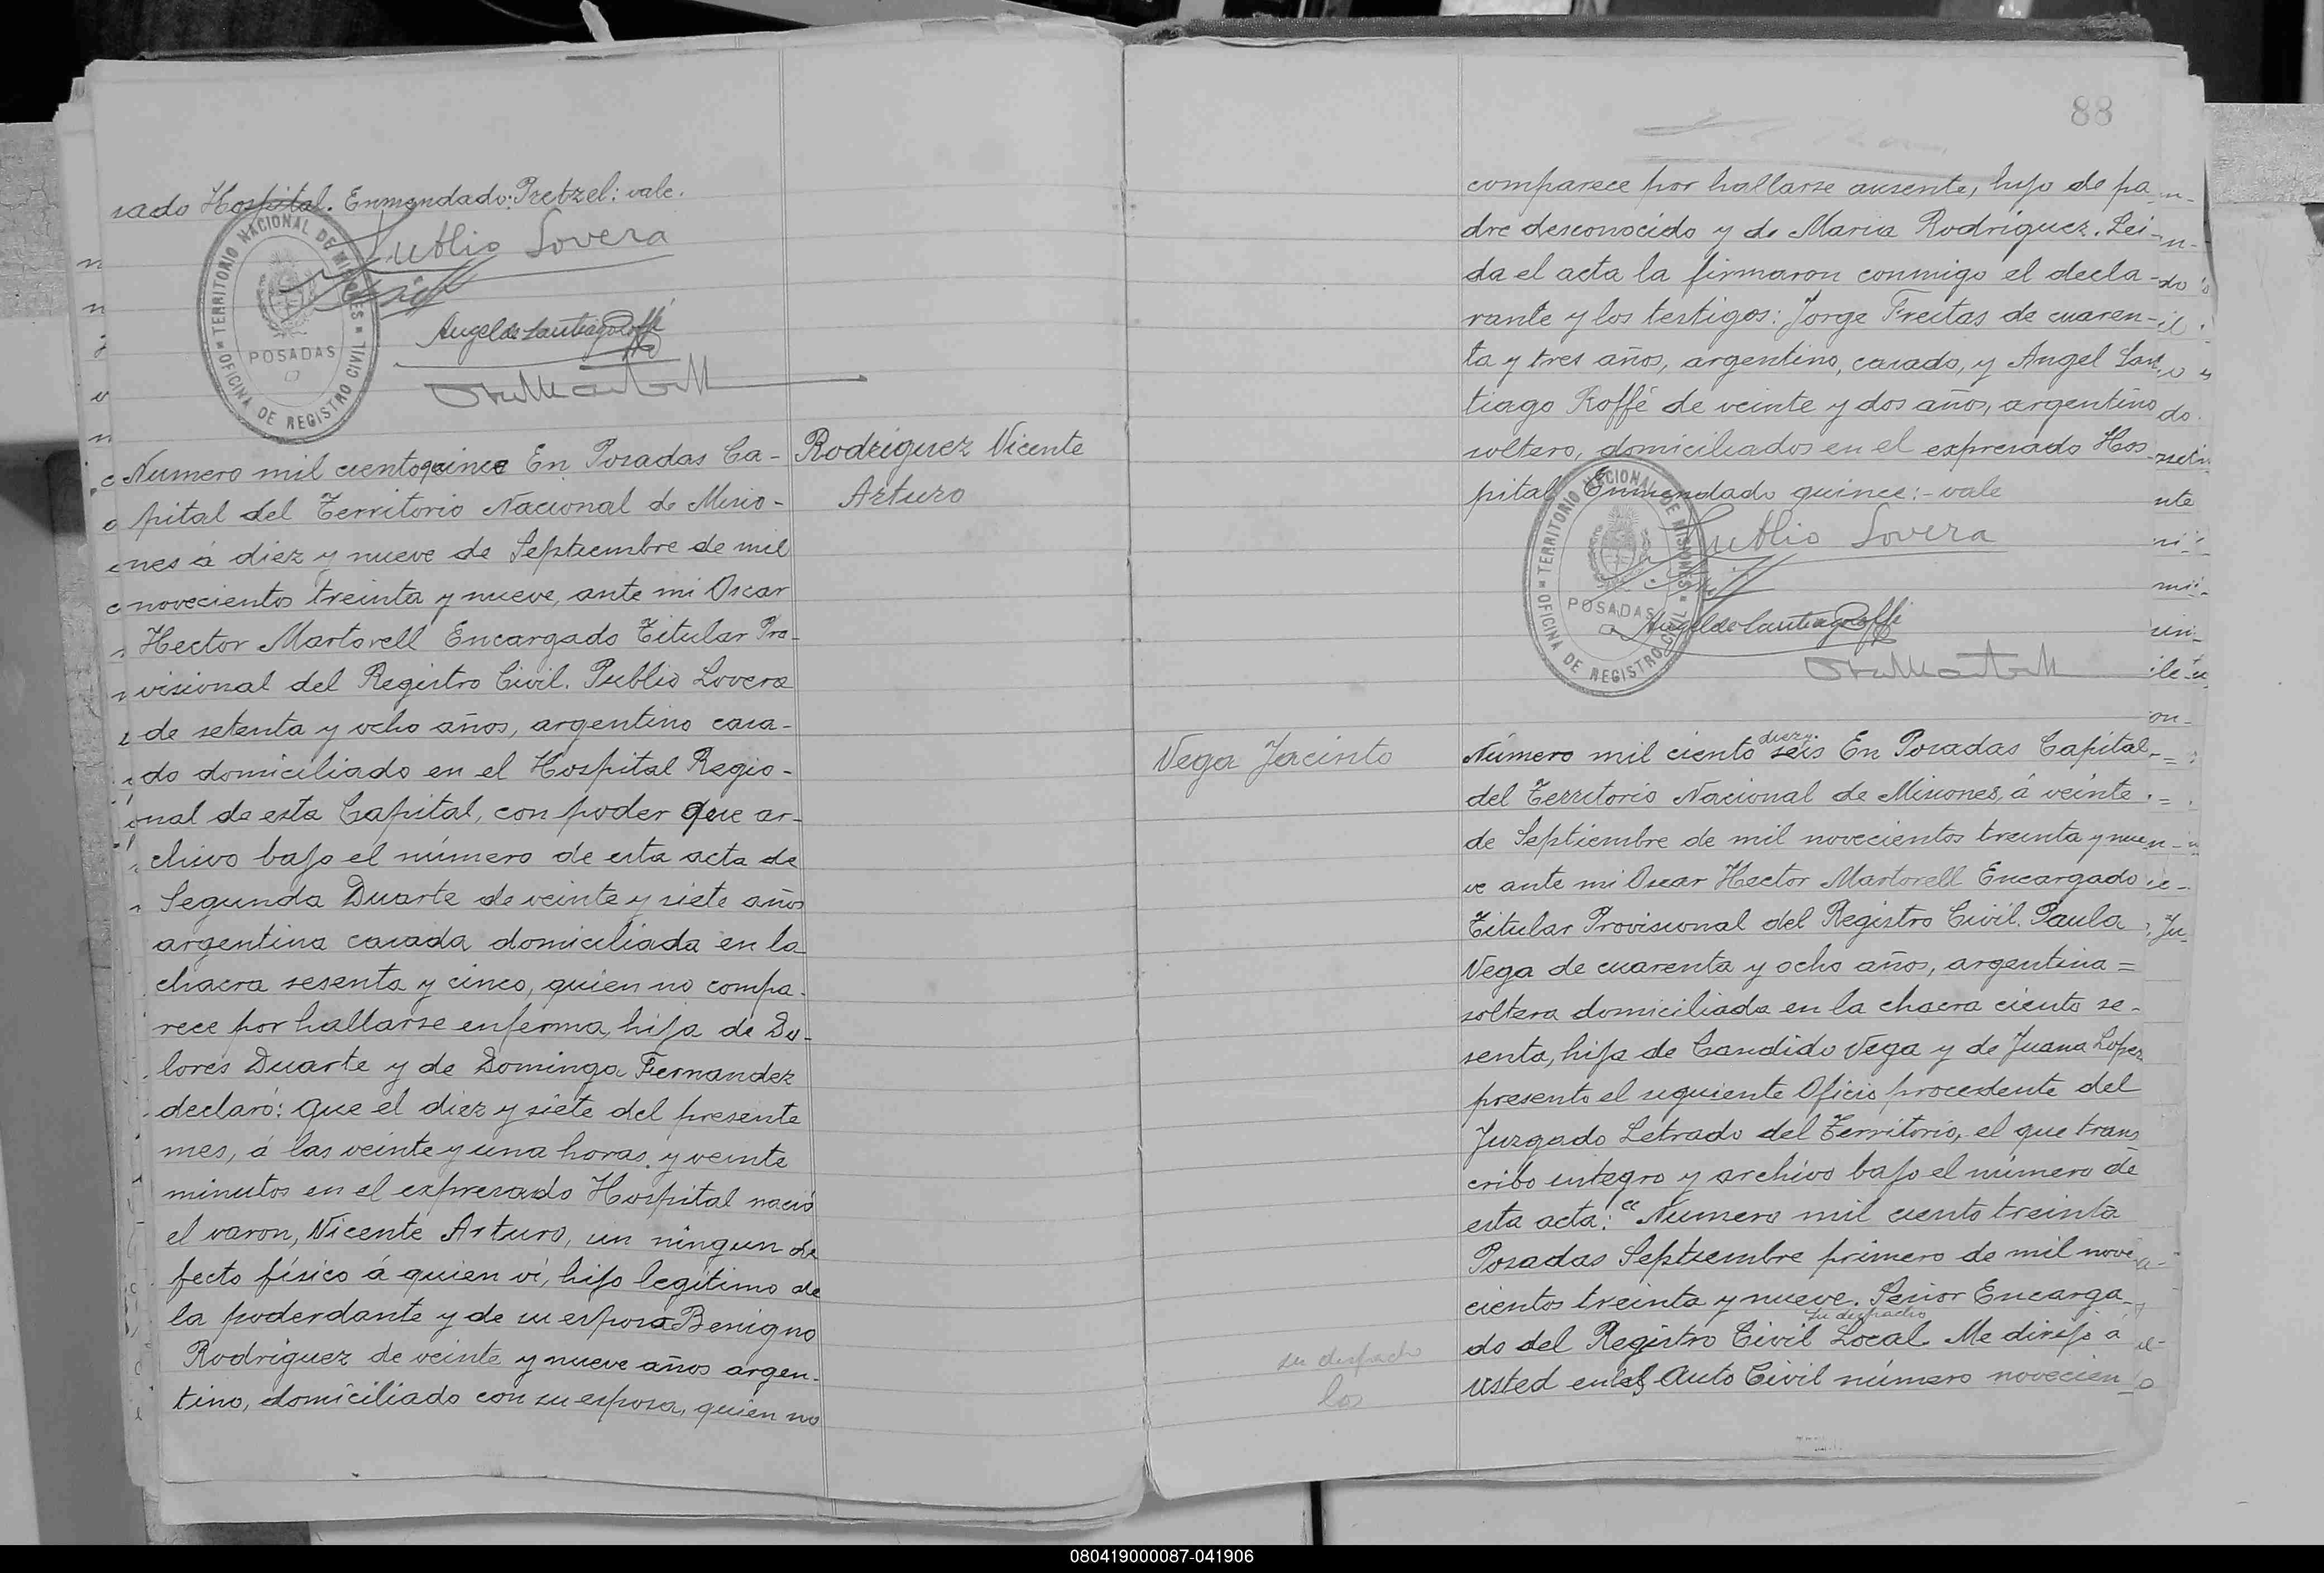 sado Hospital. Enmendado: Pretzel: vale.
Publio Lovera
Angel de Santiago Roffé
TERRITORIO NACIONAL DE MISIONES
POSADAS
OFICINA DE REGISTRO CIVIL
Rodriguez Vicente
Arturo
Numero mil cientoquince En Posadas Ca-
pital del Territorio Nacional de Misio-
nes á diez y nueve de Septiembre de mil
novecientos treinta y nueve, ante mi Oscar
Hector Martorell Encargado Titular Pro-
visional del Registro Civil. Publio Lovera
de setenta y ocho años, argentino casa-
do domiciliado en el Hospital Regio-
nal de esta Capital, con poder que ar-
chivo bajo el número de esta acta de
Segunda Duarte de veinte y siete años
argentina casada domiciliada en la
chacra sesenta y cinco, quien no compa-
rece por hallarse enferma, hija de Do-
lores Duarte y de Dominga Fernandez
declaró: Que el diez y siete del presente
mes, á las veinte y una horas y veinte
minutos en el expresado Hospital nació
el varon, Vicente Arturo, sin ningun de
fecto físico á quien vi, hijo legítimo de
la poderdante y de su esposo Benigno
Rodríguez de veinte y nueve años argen-
tino, domiciliado con su esposa, quien no
88
comparece por hallarse ausente, hijo de pa
dre desconocido y de Maria Rodríguez. Lei-
da el acta la firmaron conmigo el decla-
rante y los testigos: Jorge Freitas de cuaren-
ta y tres años, argentino, casado, y Angel San
tiago Roffé de veinte y dos años, argentino
soltero, domiciliados en el expresado Hos
pital. Enmendado quince:- vale
Publio Lovera
Angel de Santiago Roffé
TERRITORIO NACIONAL DE MISIONES
POSADAS
OFICINA DE REGISTRO CIVIL
Vega Jacinto
diez y
Número mil ciento seis En Posadas Capital
del Territorio Nacional de Misiones, á veinte
de Septiembre de mil novecientos treinta y nue
ve ante mi Oscar Hector Martorell Encargado
Titular Provisional del Registro Civil. Paula
Vega de cuarenta y ocho años, argentina =
soltera domiciliada en la chacra ciento se-
senta, hija de Candido Vega y de Juana Lopez
presento el siguiente Oficio procedente del
Juzgado Letrado del Territorio, el que trans
cribo integro y archivo bajo el número de
esta acta: "Numero mil ciento treinta
Posadas Septiembre primero de mil nove
cientos treinta y nueve. Señor Encarga
su despacho
do del Registro Civil Local. Me dirijo á
usted en los Auto Civil número novecien
su despacho
los
080419000087-041906